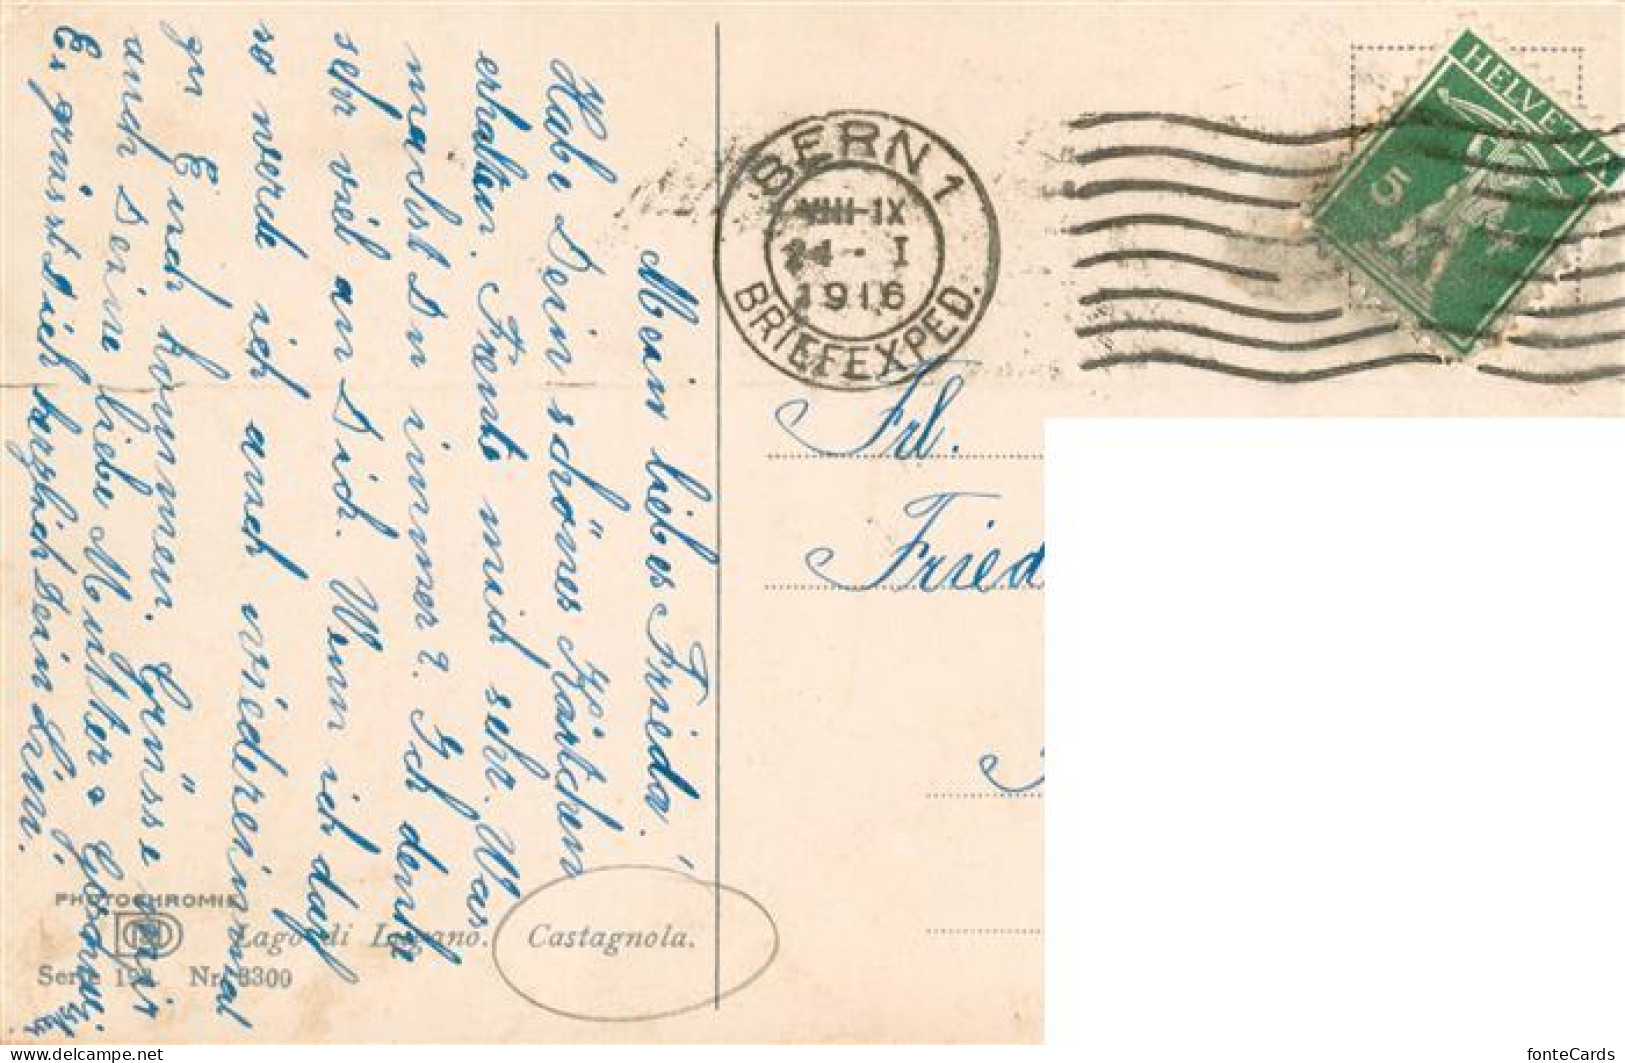 Mein liebes Frieda!
Habe Dein schönes Kärtchen
erhalten. Freute mich sehr. Was
machst Du immer? Ich denke
sehr viel an Dich. Wenn ich darf
so werde ich auch wiedereinmal
zu Euch kommen. Grüsse mir
auch Deine liebe Mutter &
Es grüsst dich herzlich dein
PHOTOCHROMIE
Lago di Lugano. Castagnola.
Serie 194 Nr. 3300
BERN 1
VIII-IX
24 - I
1916
BRIEFEXPED.
HELVETIA
5
Frl.
Fried
fonteCards